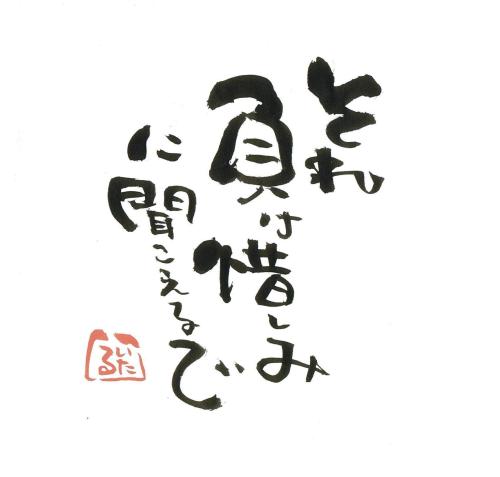 それ
負け惜しみ
に聞こえるで